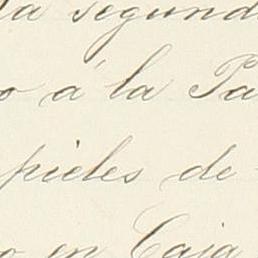 la segund
o á la Pa
pieles de
o en Caja